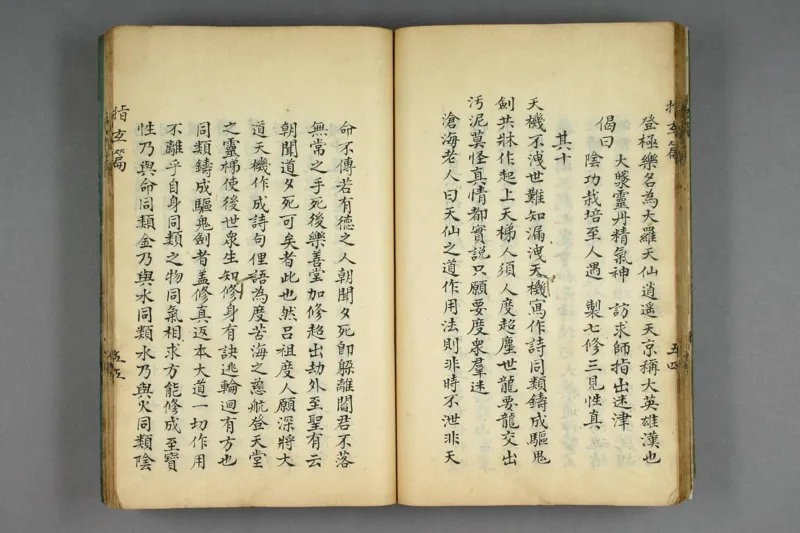 指玄篇
五四
登極樂名為大羅天仙逍遥天京稱大英雄漢也
偈曰 大藥靈丹精氣神 訪求師指出迷津
陰功栽培至人遇 製七修三見性真
其十
天機不洩世難知漏洩天機寫作詩同類鑄成驅鬼
劍共牀作起上天梯人須人度超塵世龍要龍交出
污泥莫怪真情都實説只願要度衆羣迷
滄海老人曰天仙之道作用法則非時不泄非天
命不傳若有德之人朝聞夕死卽躲離閻君不落
無常之手死後樂善堂加修超出劫外至聖有云
朝聞道夕死可矣者此也然吕祖度人願深將大
道天機作成詩句俚語為度苦海之慈航登天堂
之靈梯使後世衆生知修身有訣逃輪迴有方也
同類鑄成驅鬼劍者盖修真返本大道一切作用
不離乎自身同類之物同氣相求方能修成至寳
性乃與命同類金乃與水同類水乃與火同類陰
指玄篇
五五